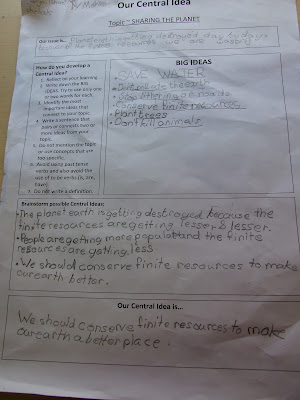 Our Central Idea
Topic ~ SHARING THE PLANET
Our issue is... Planet earth is getting destroyed day by day
because of the finite resources we are
How do you develop a
Central Idea?
1. Reflect on your learning
2. Write down the BIG
IDEAS. Try to use only one
or two words for each.
3. Identify the most
important ideas that
connect to your topic.
4. Write a sentence that
pairs or connects two or
more ideas from your
topic.
5. Do not mention the topic
or use concepts that are
too specific.
6. Avoid using past tense
verbs and also avoid the
use of to be verbs (is, are,
have).
7. Do not write a definition.
BIG IDEAS
• SAVE WATER
• Don't pollute the earth
• Stop littering on roads
• Conserve finite resources
• Plant trees
• Don't kill animals
Brainstorm possible Central Ideas:
• The planet earth is getting destroyed because the
finite resources are getting lesser & lesser.
• People are getting more popular and the finite
resources are getting less
• We should conserve finite resources to make
our earth better.
Our Central Idea is...
We should conserve finite resources to make
our earth a better place.